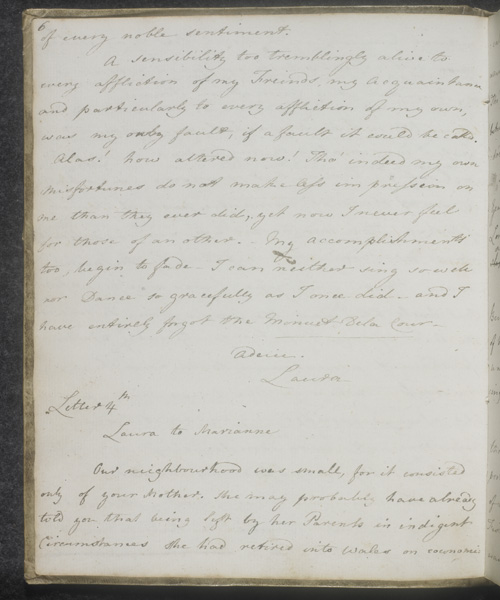 6
of every noble sentiment.
A sensibility too tremblingly alive to
every affliction of my Freinds, my Acquaintance
and particularly to every affliction of my own,
was my only fault, if a fault it could be called.
Alas! how altered now! Tho' indeed my own
misfortunes do not make less impression on
me than they ever did, yet now I never feel
for those of an other. My accomplishments
too, begin to fade - I can neither sing so well
nor Dance so gracefully as I once did - and I
have entirely forgot the Minuet Dela Cour -
Adeiu.
Laura
Letter 4th
Laura to Marianne
Our neighbourhood was small, for it consisted
only of your Mother. She may probably have already
told you that being left by her Parents in indigent
Circumstances she had retired into Wales on eoconomic